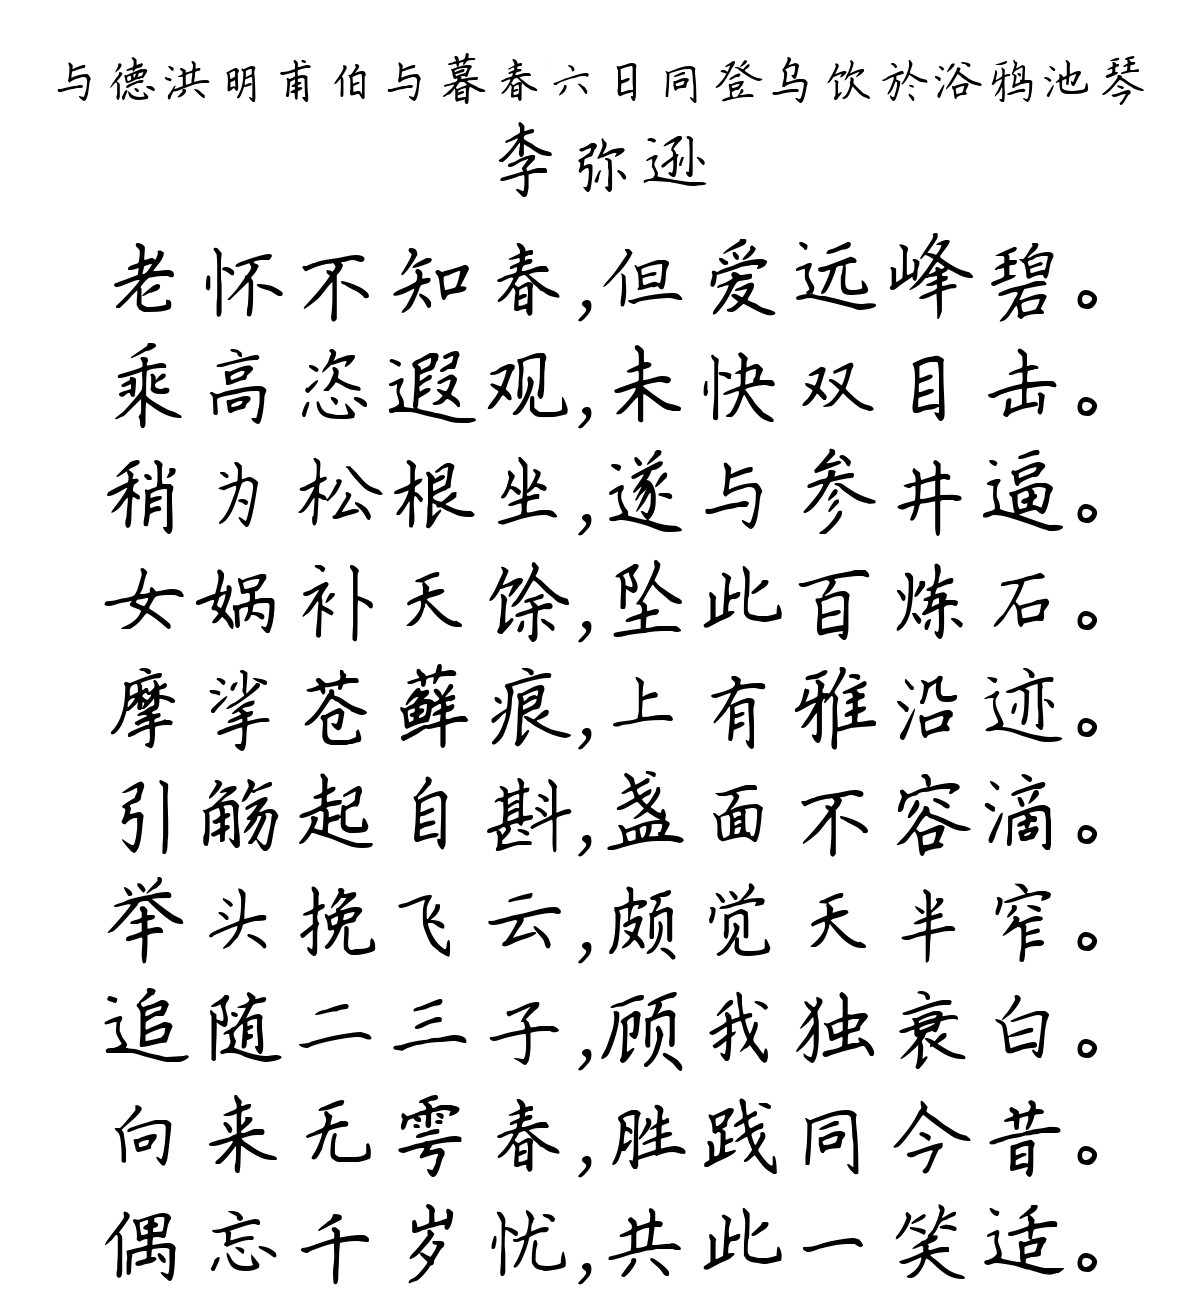 与德洪明甫伯与暮春六日同登乌饮於浴鸦池琴
李弥逊
老怀不知春,但爱远峰碧。
乘高恣遐观,未快双目击。
稍为松根坐,遂与参井逼。
女娲补天馀,坠此百炼石。
摩挲苍藓痕,上有雅沿迹。
引觞起自斟,盏面不容滴。
举头挽飞云,颇觉天半窄。
追随二三子,顾我独衰白。
向来无雩春,胜践同今昔。
偶忘千岁忧,共此一笑适。